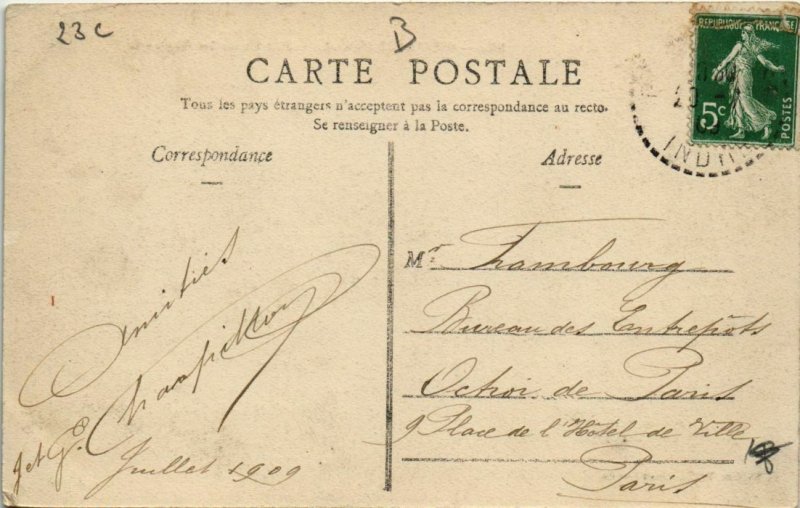 23c
B
RÉPUBLIQUE FRANÇAISE
5c
POSTES
INDRE
CARTE POSTALE
Tous les pays étrangers n'acceptent pas la correspondance au recto.
Se renseigner à la Poste.
Correspondance
Amitiés
J et G.
Juillet 1909
Adresse
Mr Frambourg
Bureau des Entrepôts
Octroi de Paris
9 Place de l'Hôtel de Ville
Paris